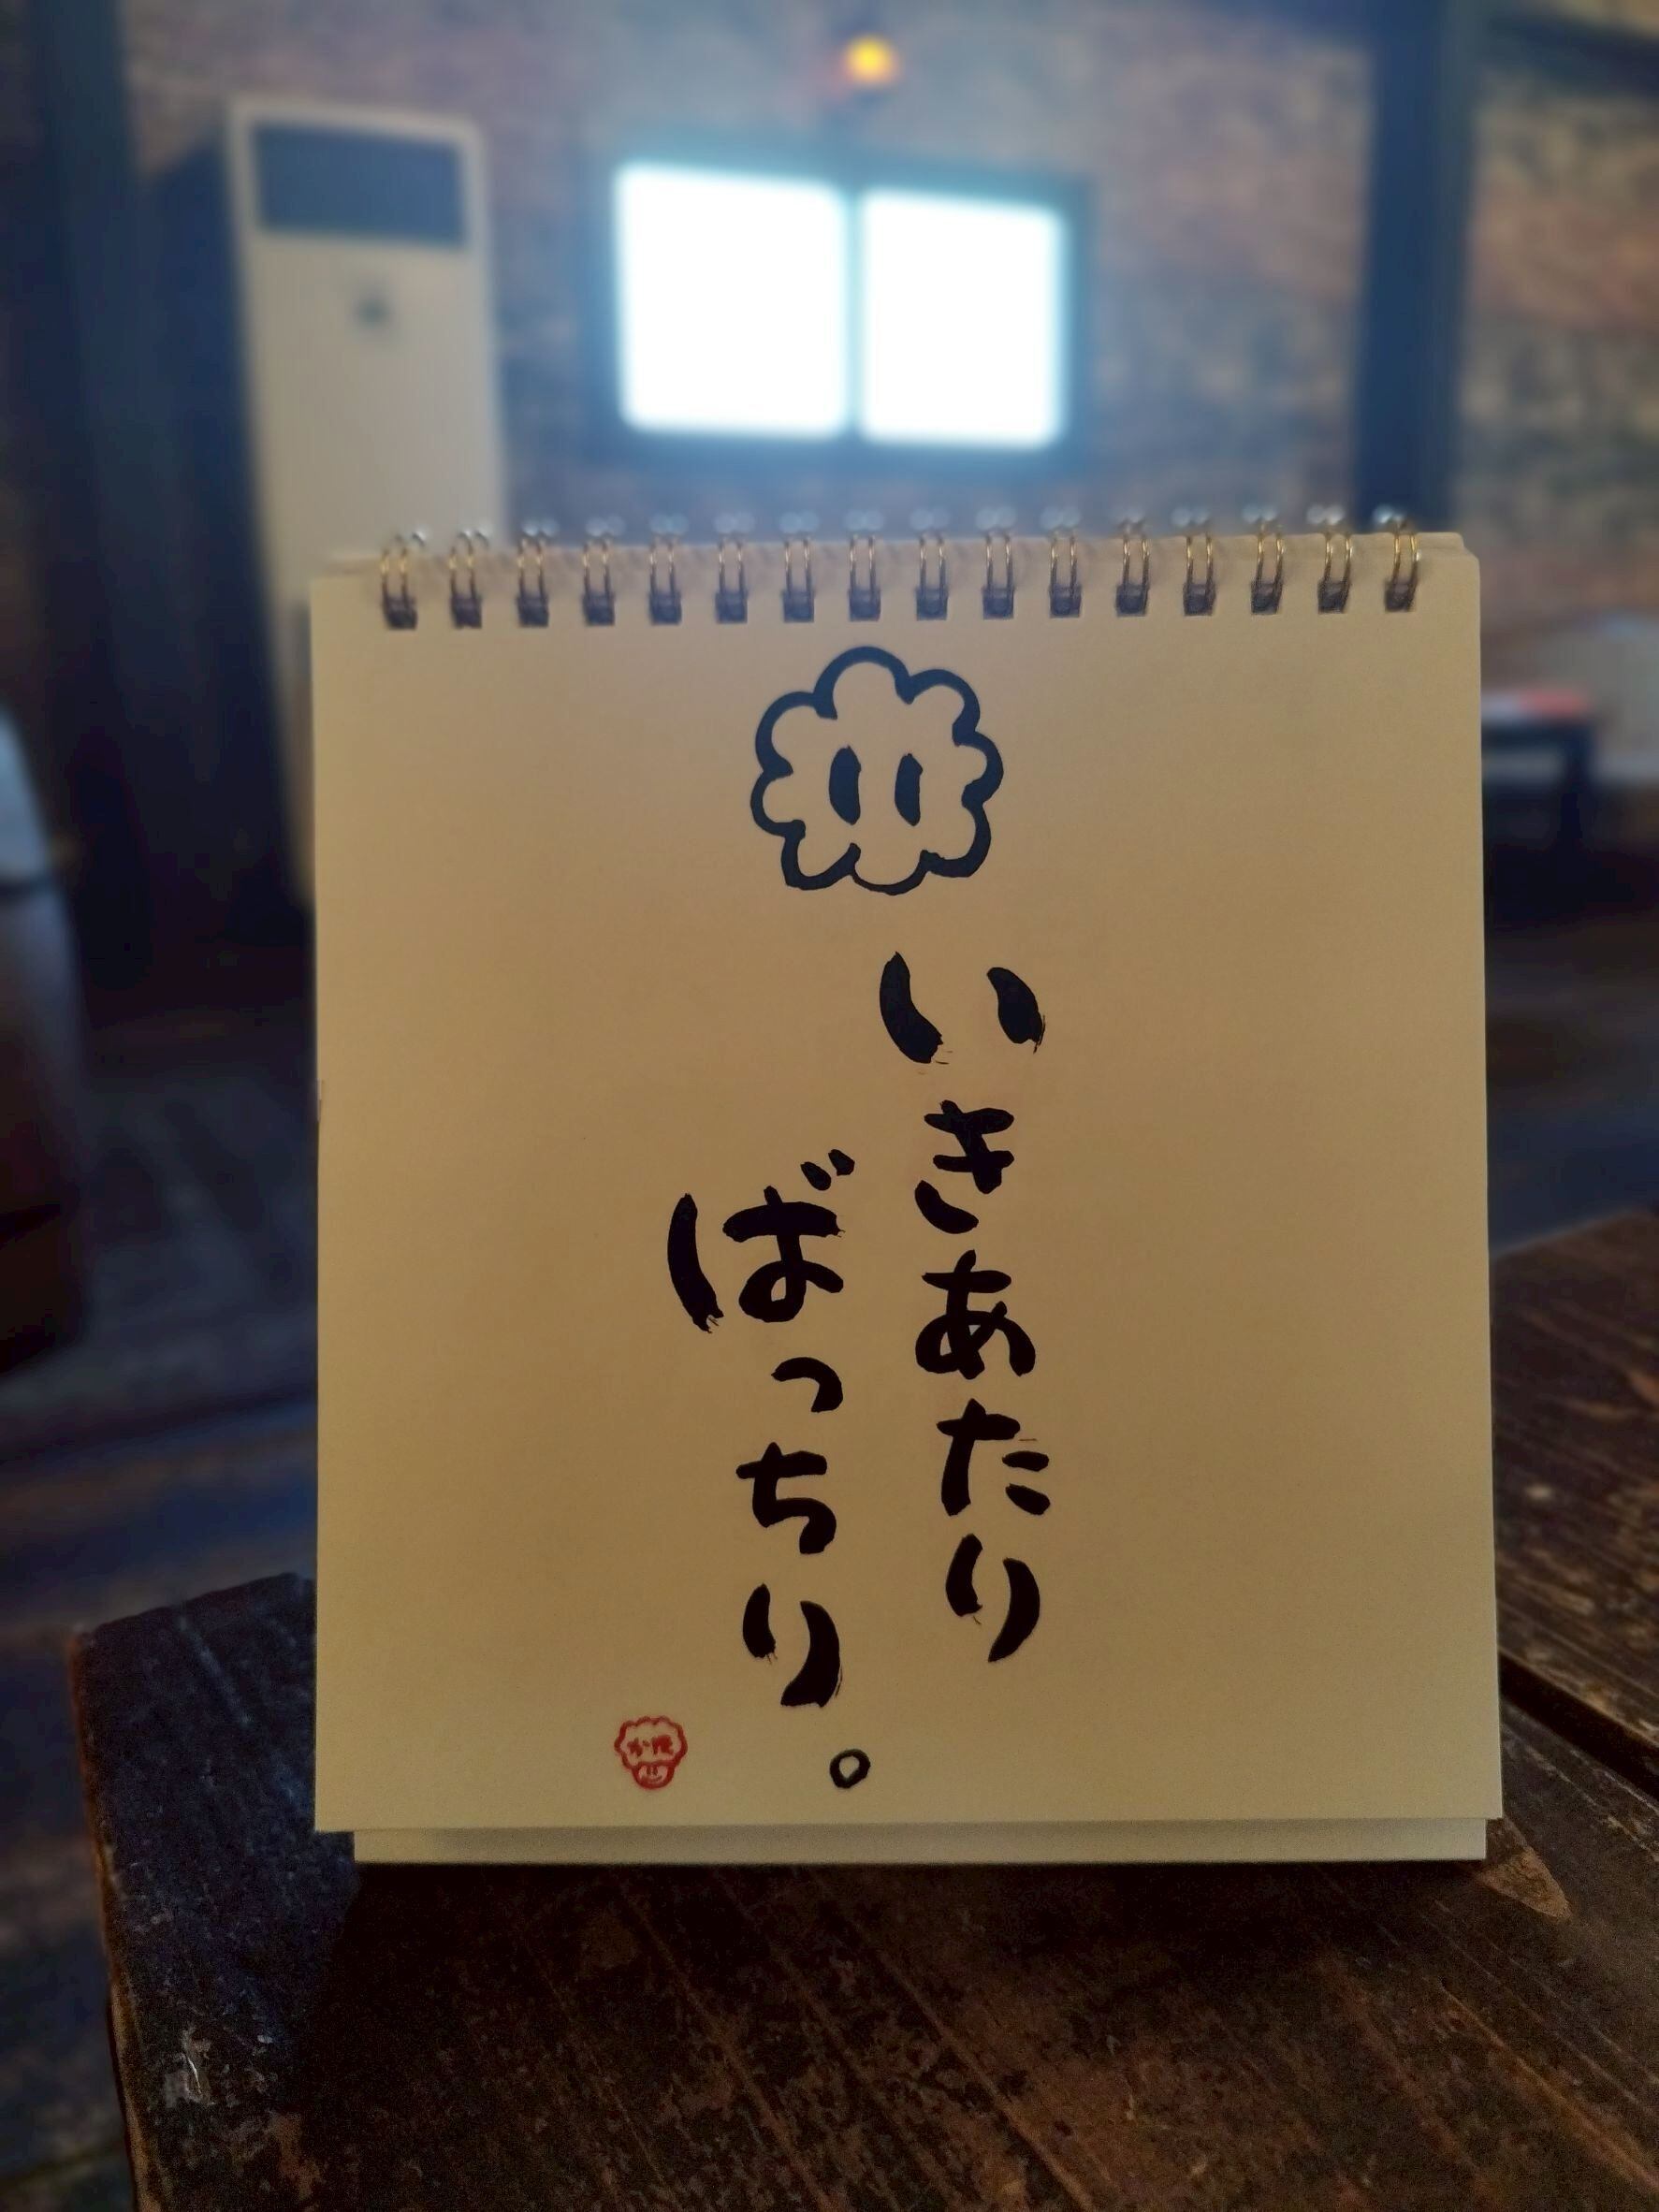 いきあたり
ばっちり。